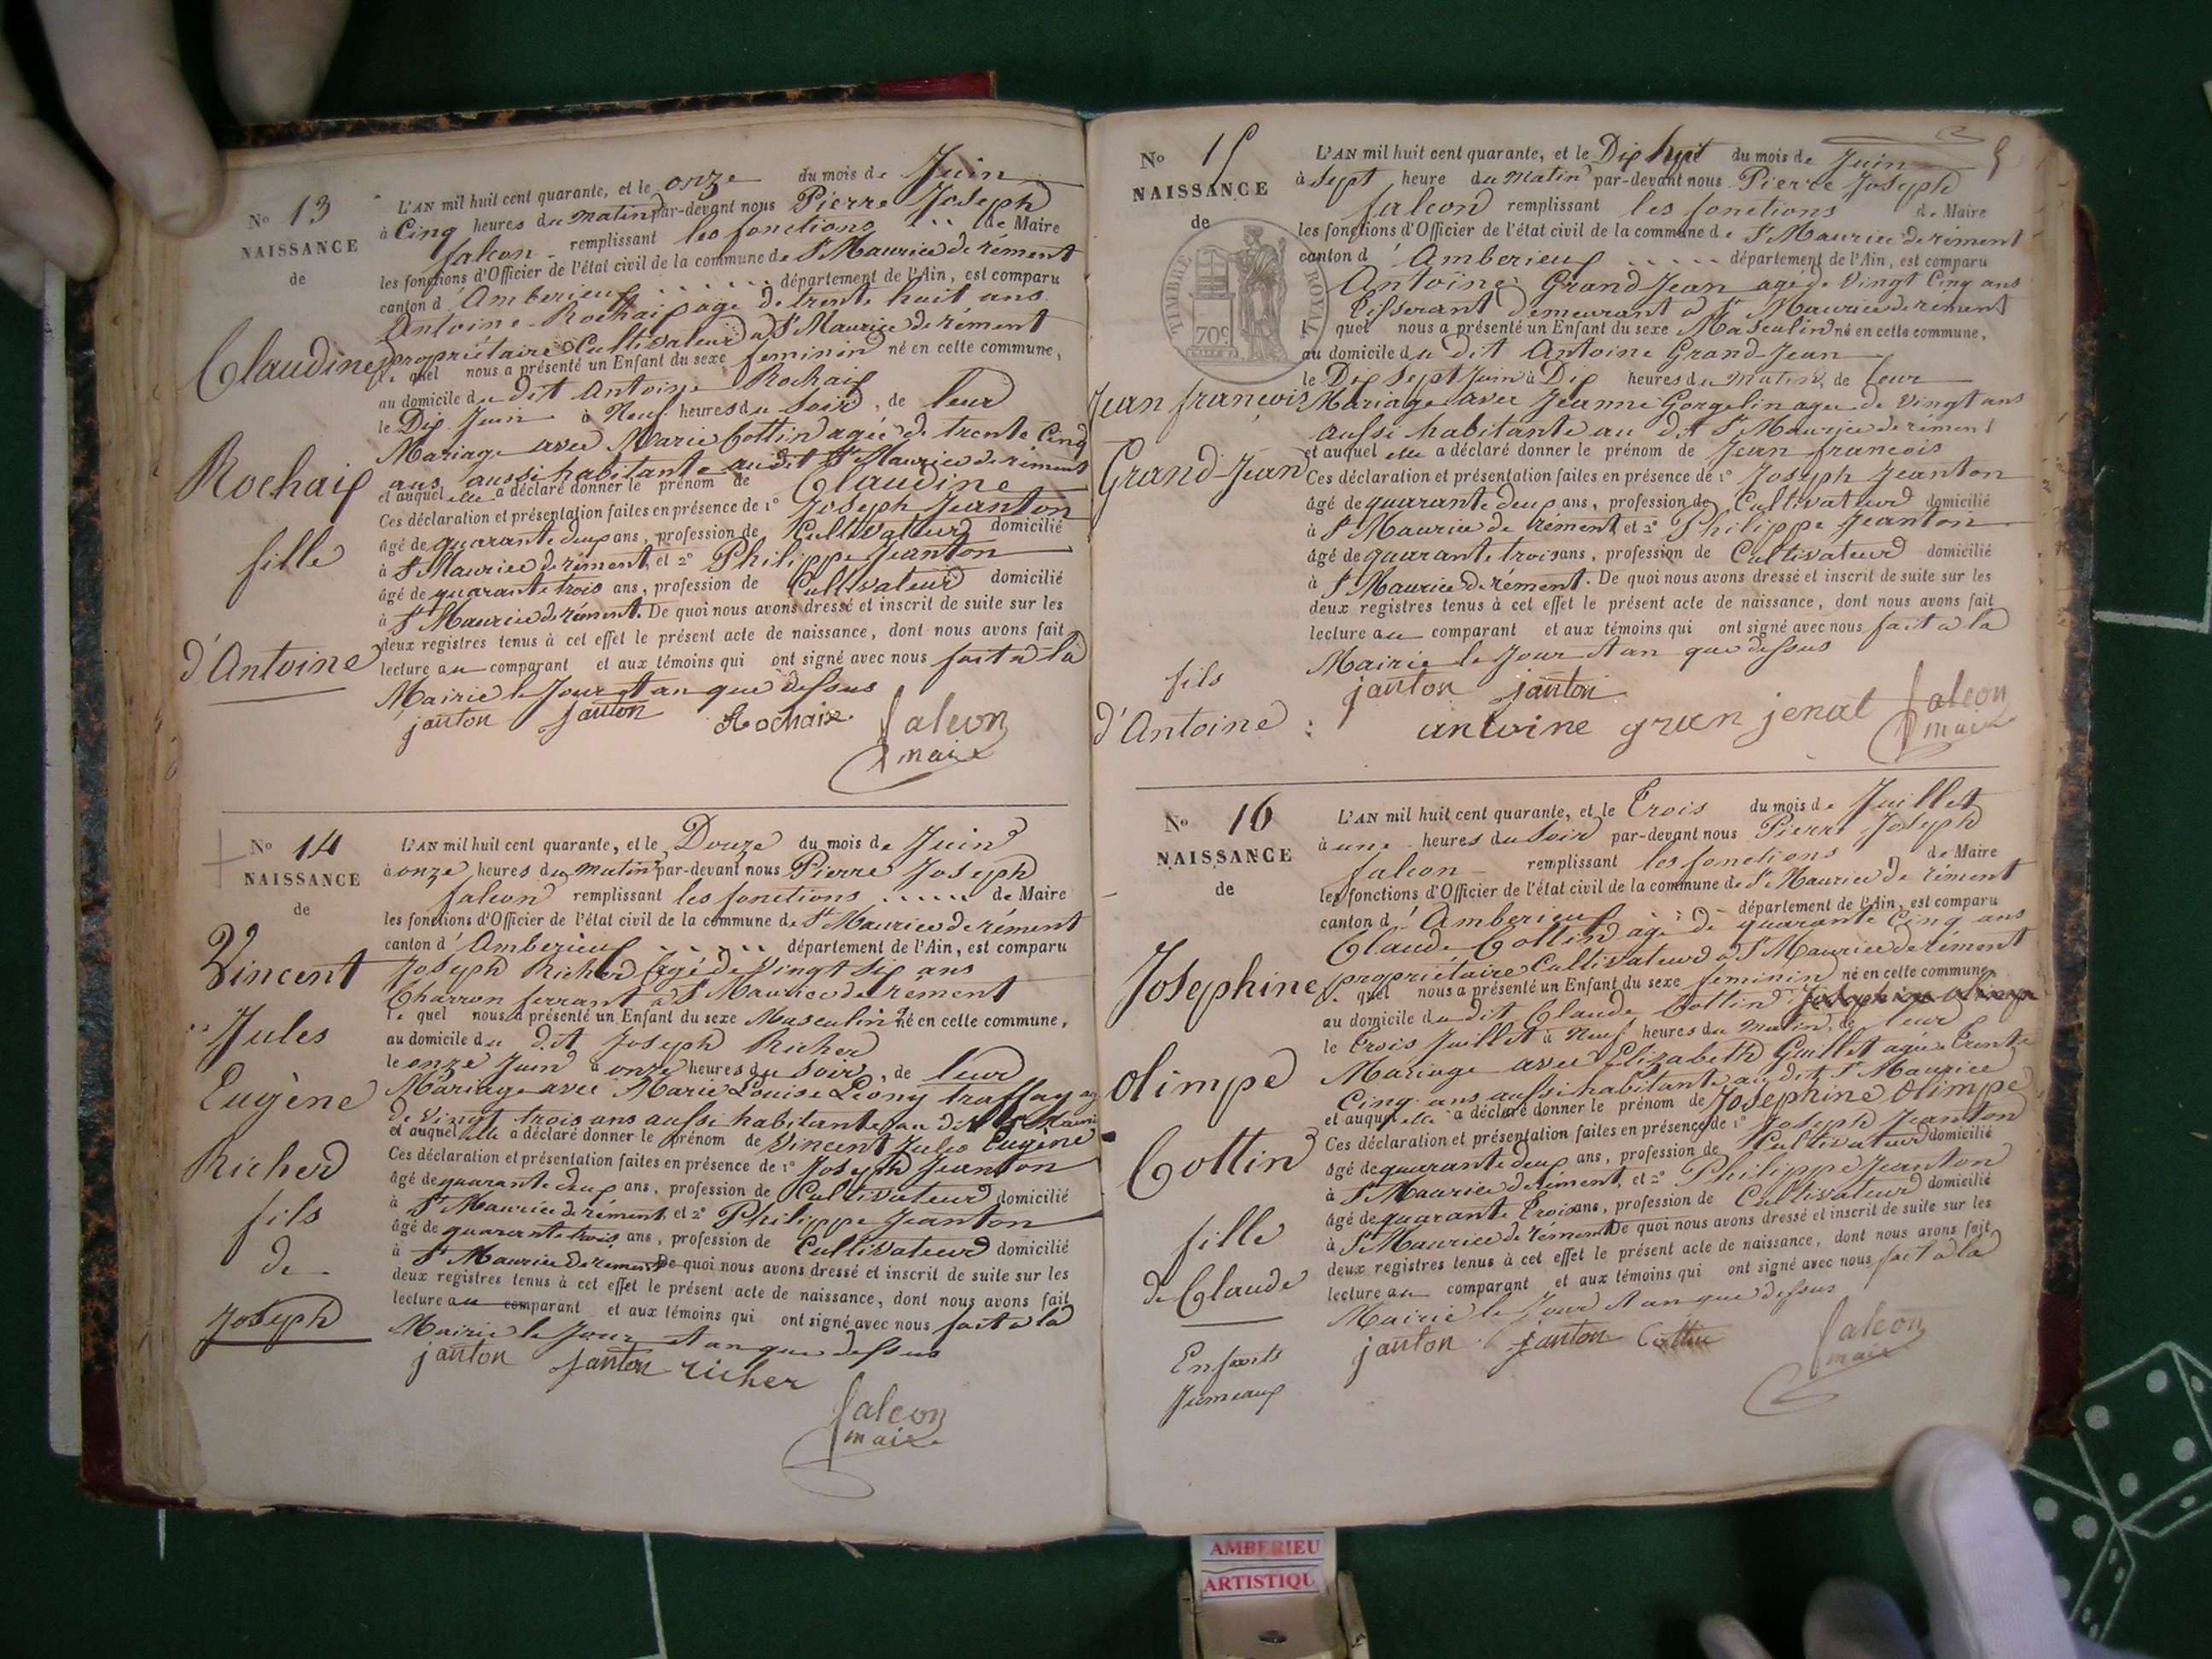 No 13
NAISSANCE
de
Claudine
Rochaix
fille
d'Antoine
L'AN mil huit cent quarante, et le onze du mois de Juin
à Cinq heures du matin par-devant nous Pierre Joseph
falcon remplissant les fonctions de Maire
les fonctions d'Officier de l'état civil de la commune de St Maurice de rément
canton d'Amberieux département de l'Ain, est comparu
Antoine Rochaix agé de trente huit ans
propriétaire Cultivateur à St Maurice de rément
le quel nous a présenté un Enfant du sexe feminin né en cette commune,
au domicile du dit Antoine Rochaix
le Dix Juin à Neuf heures du Soir, de leur
Mariage avec Marie Cottin agée de trente Cinq
ans aussi habitante au dit St Maurice de rément
et auquel elle a déclaré donner le prénom de Claudine
Ces déclaration et présentation faites en présence de 1° Joseph Jeanton
âgé de quarante deux ans, profession de Cultivateur domicilié
à St Maurice de rément, et 2° Philippe Jeanton
âgé de quarante trois ans, profession de Cultivateur domicilié
à St Maurice de rément. De quoi nous avons dressé et inscrit de suite sur les
deux registres tenus à cet effet le présent acte de naissance, dont nous avons fait
lecture au comparant et aux témoins qui ont signé avec nous fait à la
Mairie le Jour et an que dessus
janton janton Rochaix falcon
maire
No 14
NAISSANCE
de
Vincent
Jules
Eugène
Richerd
fils
de
Joseph
L'AN mil huit cent quarante, et le Douze du mois de Juin
à onze heures du matin par-devant nous Pierre Joseph
falcon remplissant les fonctions de Maire
les fonctions d'Officier de l'état civil de la commune de St Maurice de rément
canton d'Amberieux département de l'Ain, est comparu
Joseph Richerd agé de Vingt Six ans
Charron ferrant à St Maurice de rément
le quel nous a présenté un Enfant du sexe Masculin né en cette commune,
au domicile du dit Joseph Richerd
le onze Juin à onze heures du Soir, de leur
Mariage avec Marie Louise Leony traffay ag
de Vingt trois ans aussi habitante au dit St Mauri
et auquel elle a déclaré donner le prénom de Vincent Jules Eugène
Ces déclaration et présentation faites en présence de 1° Joseph Jeanton
âgé de quarante deux ans, profession de Cultivateur domicilié
à St Maurice de rément, et 2° Philippe Jeanton
âgé de quarante trois ans, profession de Cultivateur domicilié
à St Maurice de rément De quoi nous avons dressé et inscrit de suite sur les
deux registres tenus à cet effet le présent acte de naissance, dont nous avons fait
lecture au comparant et aux témoins qui ont signé avec nous fait à la
Mairie le Jour et an que dessus
janton janton richer
falcon
maire
No 15
NAISSANCE
de
TIMBRE ROYAL
70c
Jean françois
Grand-Jean
fils
d'Antoine
L'AN mil huit cent quarante, et le Dix Sept du mois de Juin
à Sept heure du Matin par-devant nous Pierre Joseph
falcon remplissant les fonctions de Maire
les fonctions d'Officier de l'état civil de la commune de St Maurice de rément
canton d'Amberieux département de l'Ain, est comparu
Antoine Grand Jean agé de Vingt Cinq ans
Tisserant demeurant à St Maurice de rément
l quel nous a présenté un Enfant du sexe Masculin né en cette commune,
au domicile du dit Antoine Grand-Jean
le Dix Sept Juin à Dix heures du Matin, de leur
Mariage avec Jeanne Gorgelin agée de Vingt ans
aussi habitante au dit St Maurice de rément
et auquel elle a déclaré donner le prénom de Jean francois
Ces déclaration et présentation faites en présence de 1° Joseph Jeanton
âgé de quarante deux ans, profession de Cultivateur domicilié
à St Maurice de rément, et 2° Philippe Jeanton
âgé de quarante trois ans, profession de Cultivateur domicilié
à St Maurice de rément. De quoi nous avons dressé et inscrit de suite sur les
deux registres tenus à cet effet le présent acte de naissance, dont nous avons fait
lecture au comparant et aux témoins qui ont signé avec nous fait à la
Mairie le Jour et an que dessus
janton janton
antoine gran jenat falcon
maire
No 16
NAISSANCE
de
Josephine
olimpe
Cottin
fille
de Claude
Enfants
Jumeaux
L'AN mil huit cent quarante, et le Trois du mois de Juillet
à une heures du Soir par-devant nous Pierre Joseph
falcon remplissant les fonctions de Maire
les fonctions d'Officier de l'état civil de la commune de St Maurice de rément
canton d'Amberieux département de l'Ain, est comparu
Claude Cottin agé de quarante Cinq ans
propriétaire Cultivateur à St Maurice de rément
quel nous a présenté un Enfant du sexe feminin né en cette commune,
au domicile du dit Claude Cottin
le trois Juillet à Neuf heures du Matin, de leur
Mariage avec Elizabeth Guillet agée Trente
Cinq ans aussi habitante au dit St Maurice
et auquel elle a déclaré donner le prénom de Josephine Olimpe
Ces déclaration et présentation faites en présence de 1° Joseph Jeanton
âgé de quarante deux ans, profession de Cultivateur domicilié
à St Maurice de rément, et 2° Philippe Jeanton
âgé de quarante Trois ans, profession de Cultivateur domicilié
à St Maurice de rément De quoi nous avons dressé et inscrit de suite sur les
deux registres tenus à cet effet le présent acte de naissance, dont nous avons fait
lecture au comparant et aux témoins qui ont signé avec nous fait à la
Mairie le Jour et an que dessus
janton janton Cottin falcon
maire
AMBERIEU
ARTISTIQU